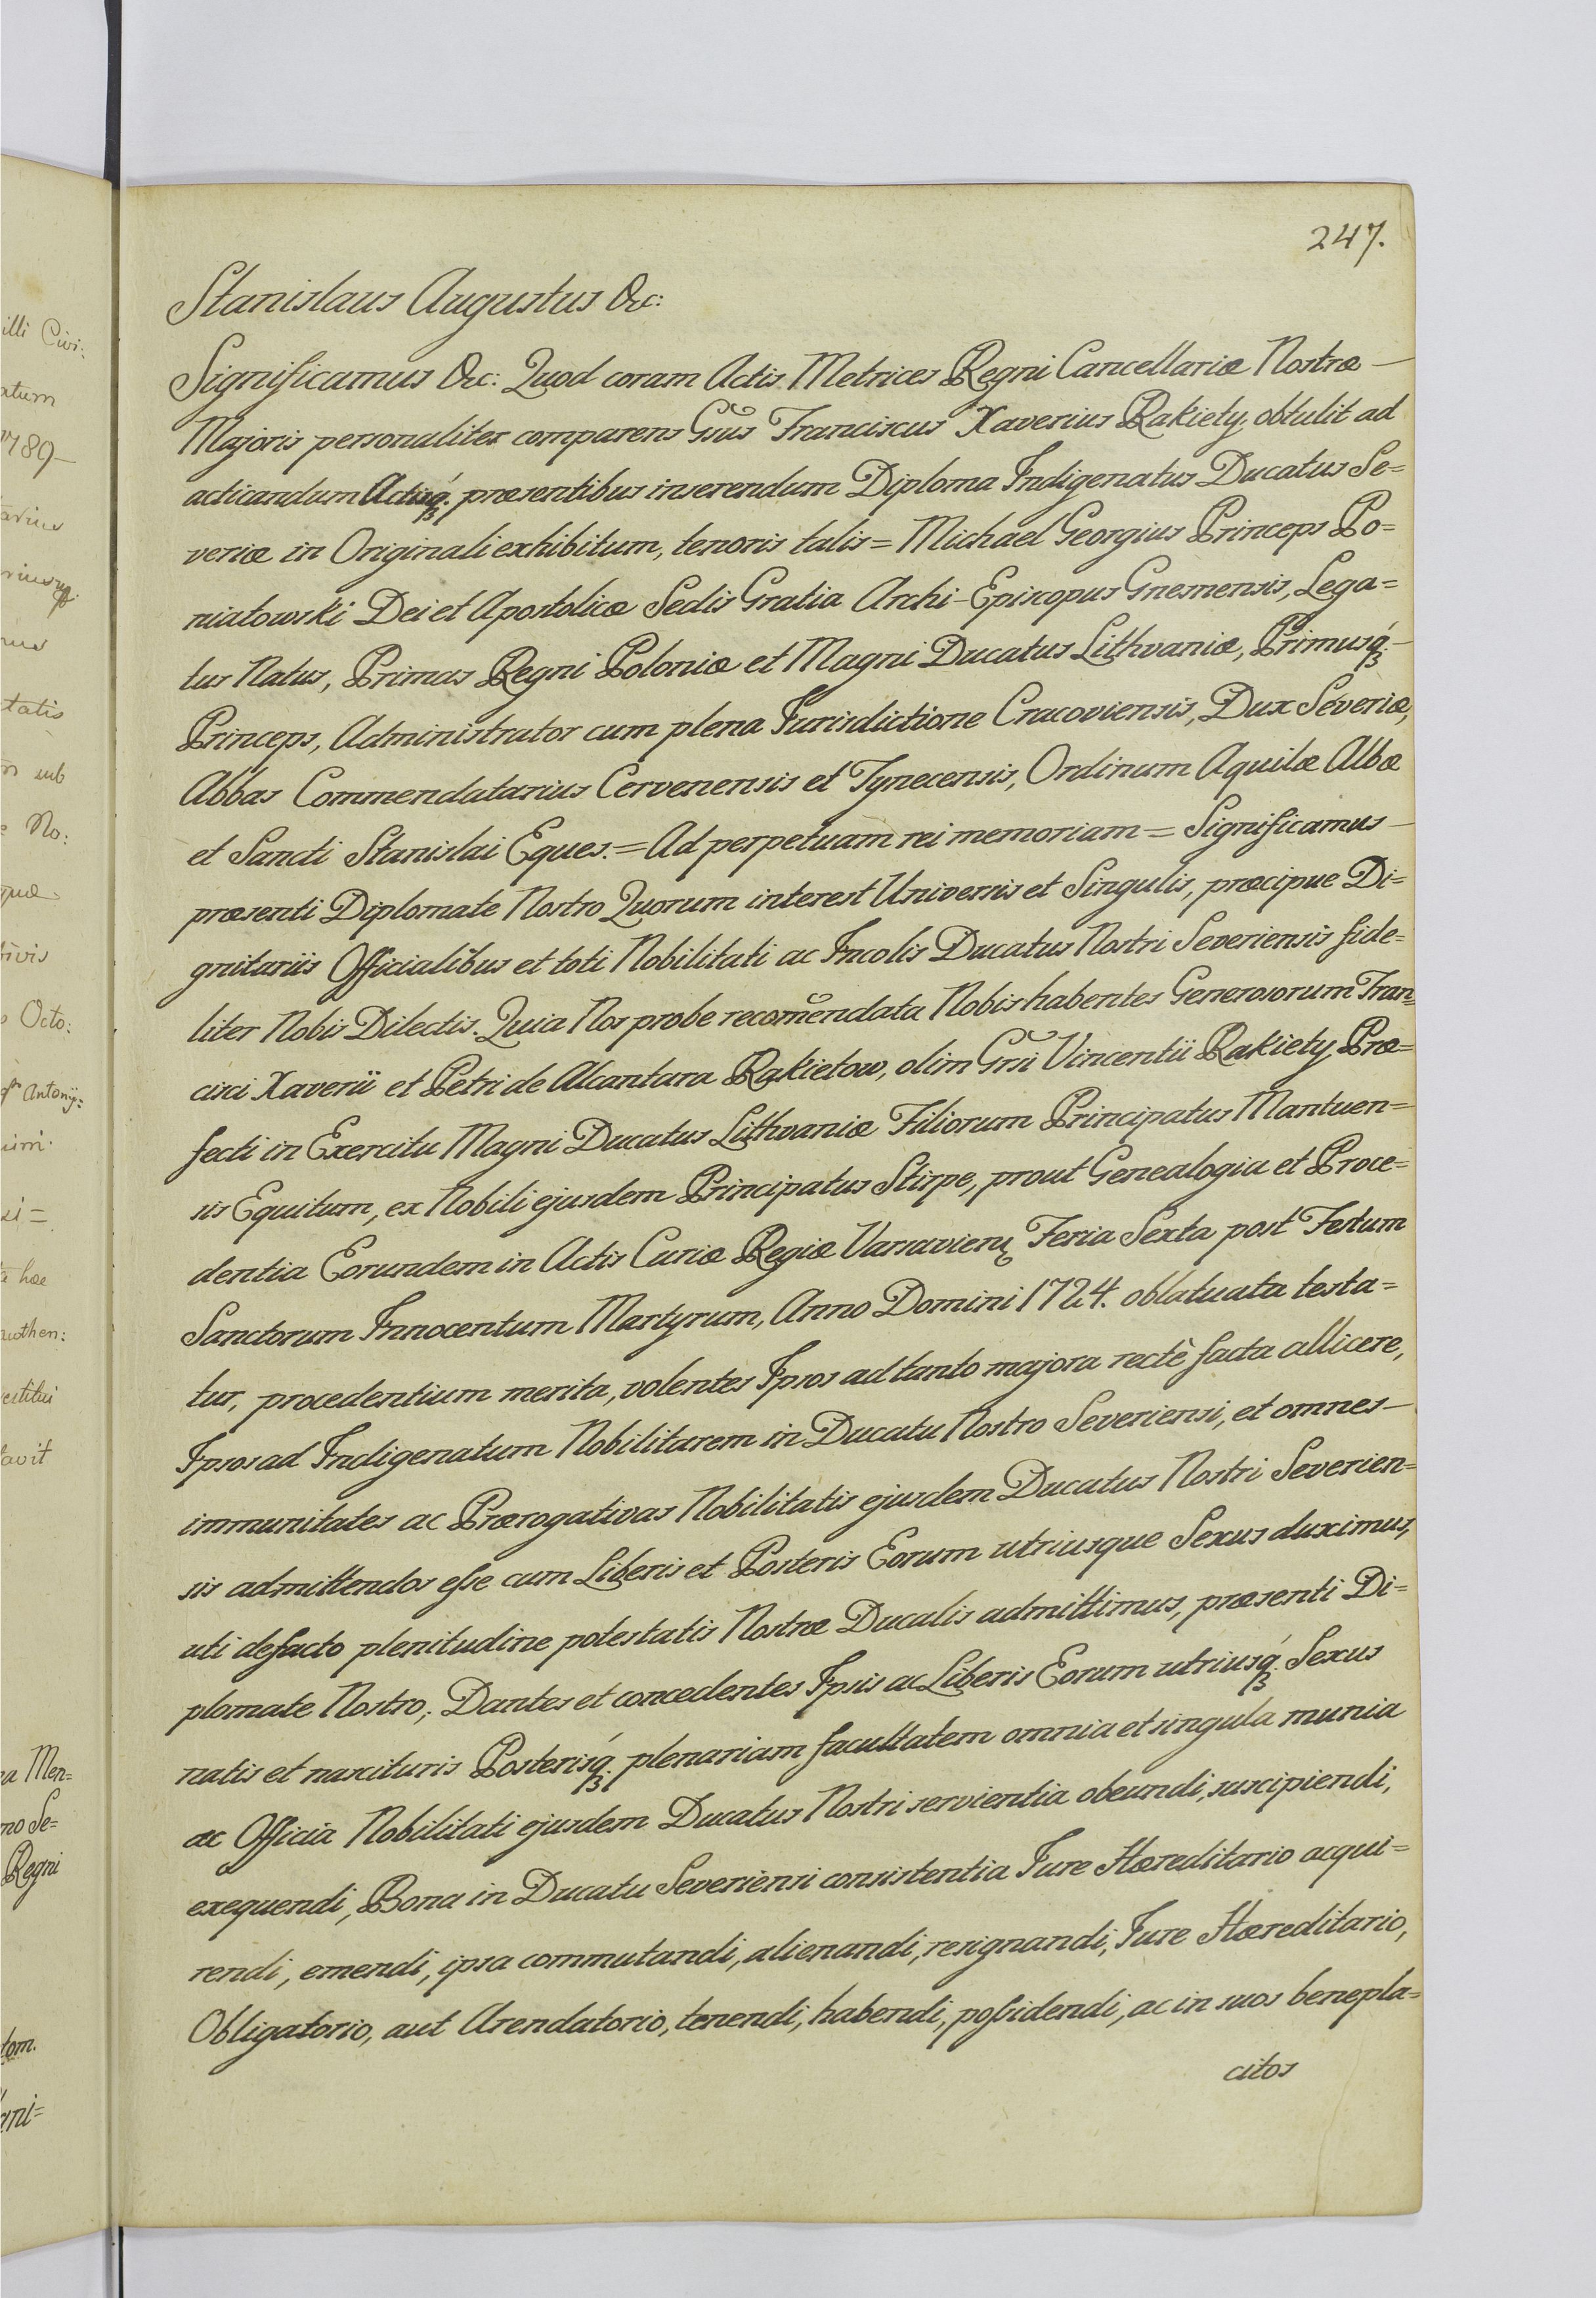 247.
Stanislaus Augustus &c:
Significamus &c: Quod coram Actis Metrices Regni Cancellariæ Nostræ —
Majoris personaliter comparens Gsus Franciscus Xaverius Rakiety, obtulit ad
acticandum Actisq́ꝫ. præsentibus inserendum Diploma Indigenatus Ducatus Se=
veriæ in Originali exhibitum, tenoris talis = Michael Georgius Princeps Po=
niatowski Dei et Apostolicæ Sedis Gratia Archi-Episcopus Gnesnensis, Lega=
tus Natus, Primas Regni Poloniæ et Magni Ducatus Lithvaniæ, Primusq́ꝫ. —
Princeps, Administrator cum plena Jurisdictione Cracoviensis, Dux Severiæ,
Abbas Commendatarius Cervenensis et Tynecensis, Ordinum Aquilæ Albæ
et Sancti Stanislai Eques. = Ad perpetuam rei memoriam = Significamus —
præsenti Diplomate Nostro Quorum interest Universis et Singulis, præcipue Di=
gnitariis Officialibus et toti Nobilitati ac Incolis Ducatus Nostri Severiensis fide=
liter Nobis Dilectis. Quia Nos probe recom̃endata Nobis habentes Generosorum Fran=
cisci Xaverii et Petri de Alcantara Rakietow, olim Gsi Vincentii Rakiety, Præ=
fecti in Exercitu Magni Ducatus Lithvaniæ Filiorum Principatus Mantuen=
sis Equitum, ex Nobili ejusdem Principatus Stirpe, prout Genealogia et Proce=
dentia Eorundem in Actis Curiæ Regiæ Varsavien͢ Feria Sexta post Festum
Sanctorum Innocentum Martyrum, Anno Domini 1724. oblatuata testa=
tur, procedentium merita, volentes Ipsos ad tanto majora rectè facta allicere,
Ipsos ad Indigenatum Nobilitarem in Ducatu Nostro Severiensi, et omnes —
immunitates ac Prærogativas Nobilitatis ejusdem Ducatus Nostri Severien=
sis admittendos eſse cum Liberis et Posteris Eorum utriusque Sexus duximus,
uti defacto plenitudine potestatis Nostræ Ducalis admittimus, præsenti Di=
plomate Nostro; Dantes et concedentes Ipsis ac Liberis Eorum utriusq́ꝫ. Sexus
natis et nascituris Posterisq́ꝫ. plenariam facultatem omnia et singula munia
ac Officia Nobilitati ejusdem Ducatus Nostri servientia obeundi, suscipiendi,
exequendi, Bona in Ducatu Severiensi consistentia Jure Hæreditario acqui=
rendi, emendi, ipsa commutandi, alienandi, resignandi, Jure Hæreditario,
Obligatorio, aut Arendatorio, tenendi, habendi, poſsidendi, ac in suos benepla=
citos
illi Civi:
atum
1789 —
tatis
sub
No:
ivis
Octo:
Antonij:
hæ
authen:
estitui
avit
Men=
mo Se=
Regni